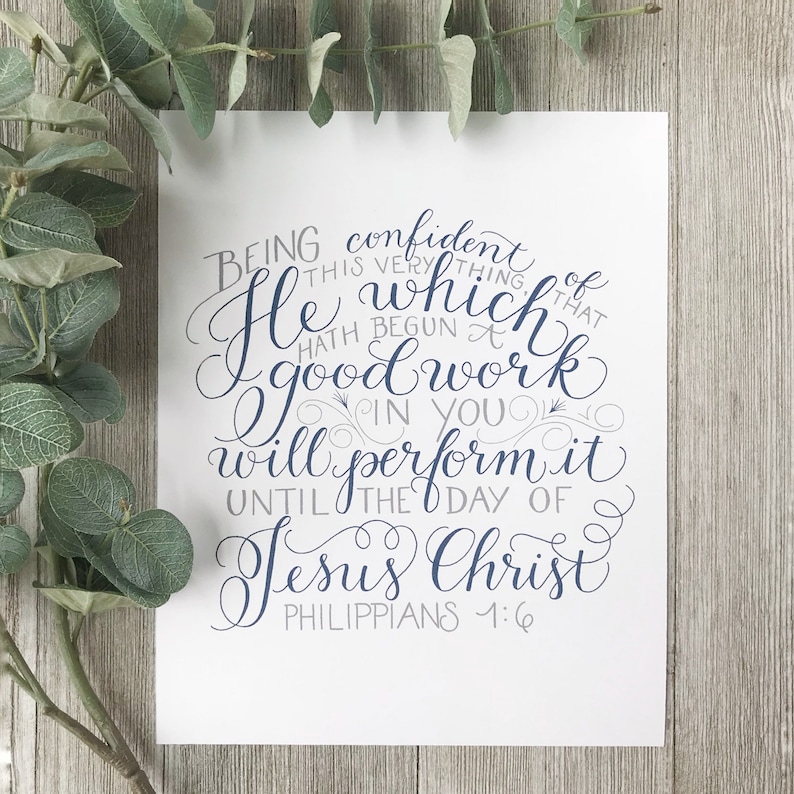 BEING confident of
THIS VERY THING, THAT
He which
HATH BEGUN A
good work
IN YOU
will perform it
UNTIL THE DAY OF
Jesus Christ
PHILIPPIANS 1:6